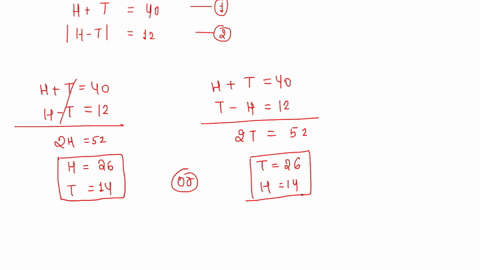 H + T = 40 — ①
|H-T| = 12 — ②
H + T = 40
H - T = 12
2H = 52
H = 26
T = 14
or
H + T = 40
T - H = 12
2T = 52
T = 26
H = 14